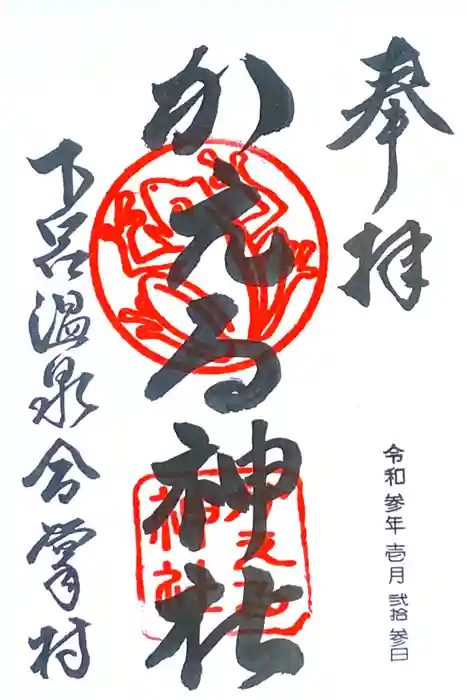 奉拝
令和参年壱月弐拾参日
かえる神社
下呂温泉合掌村